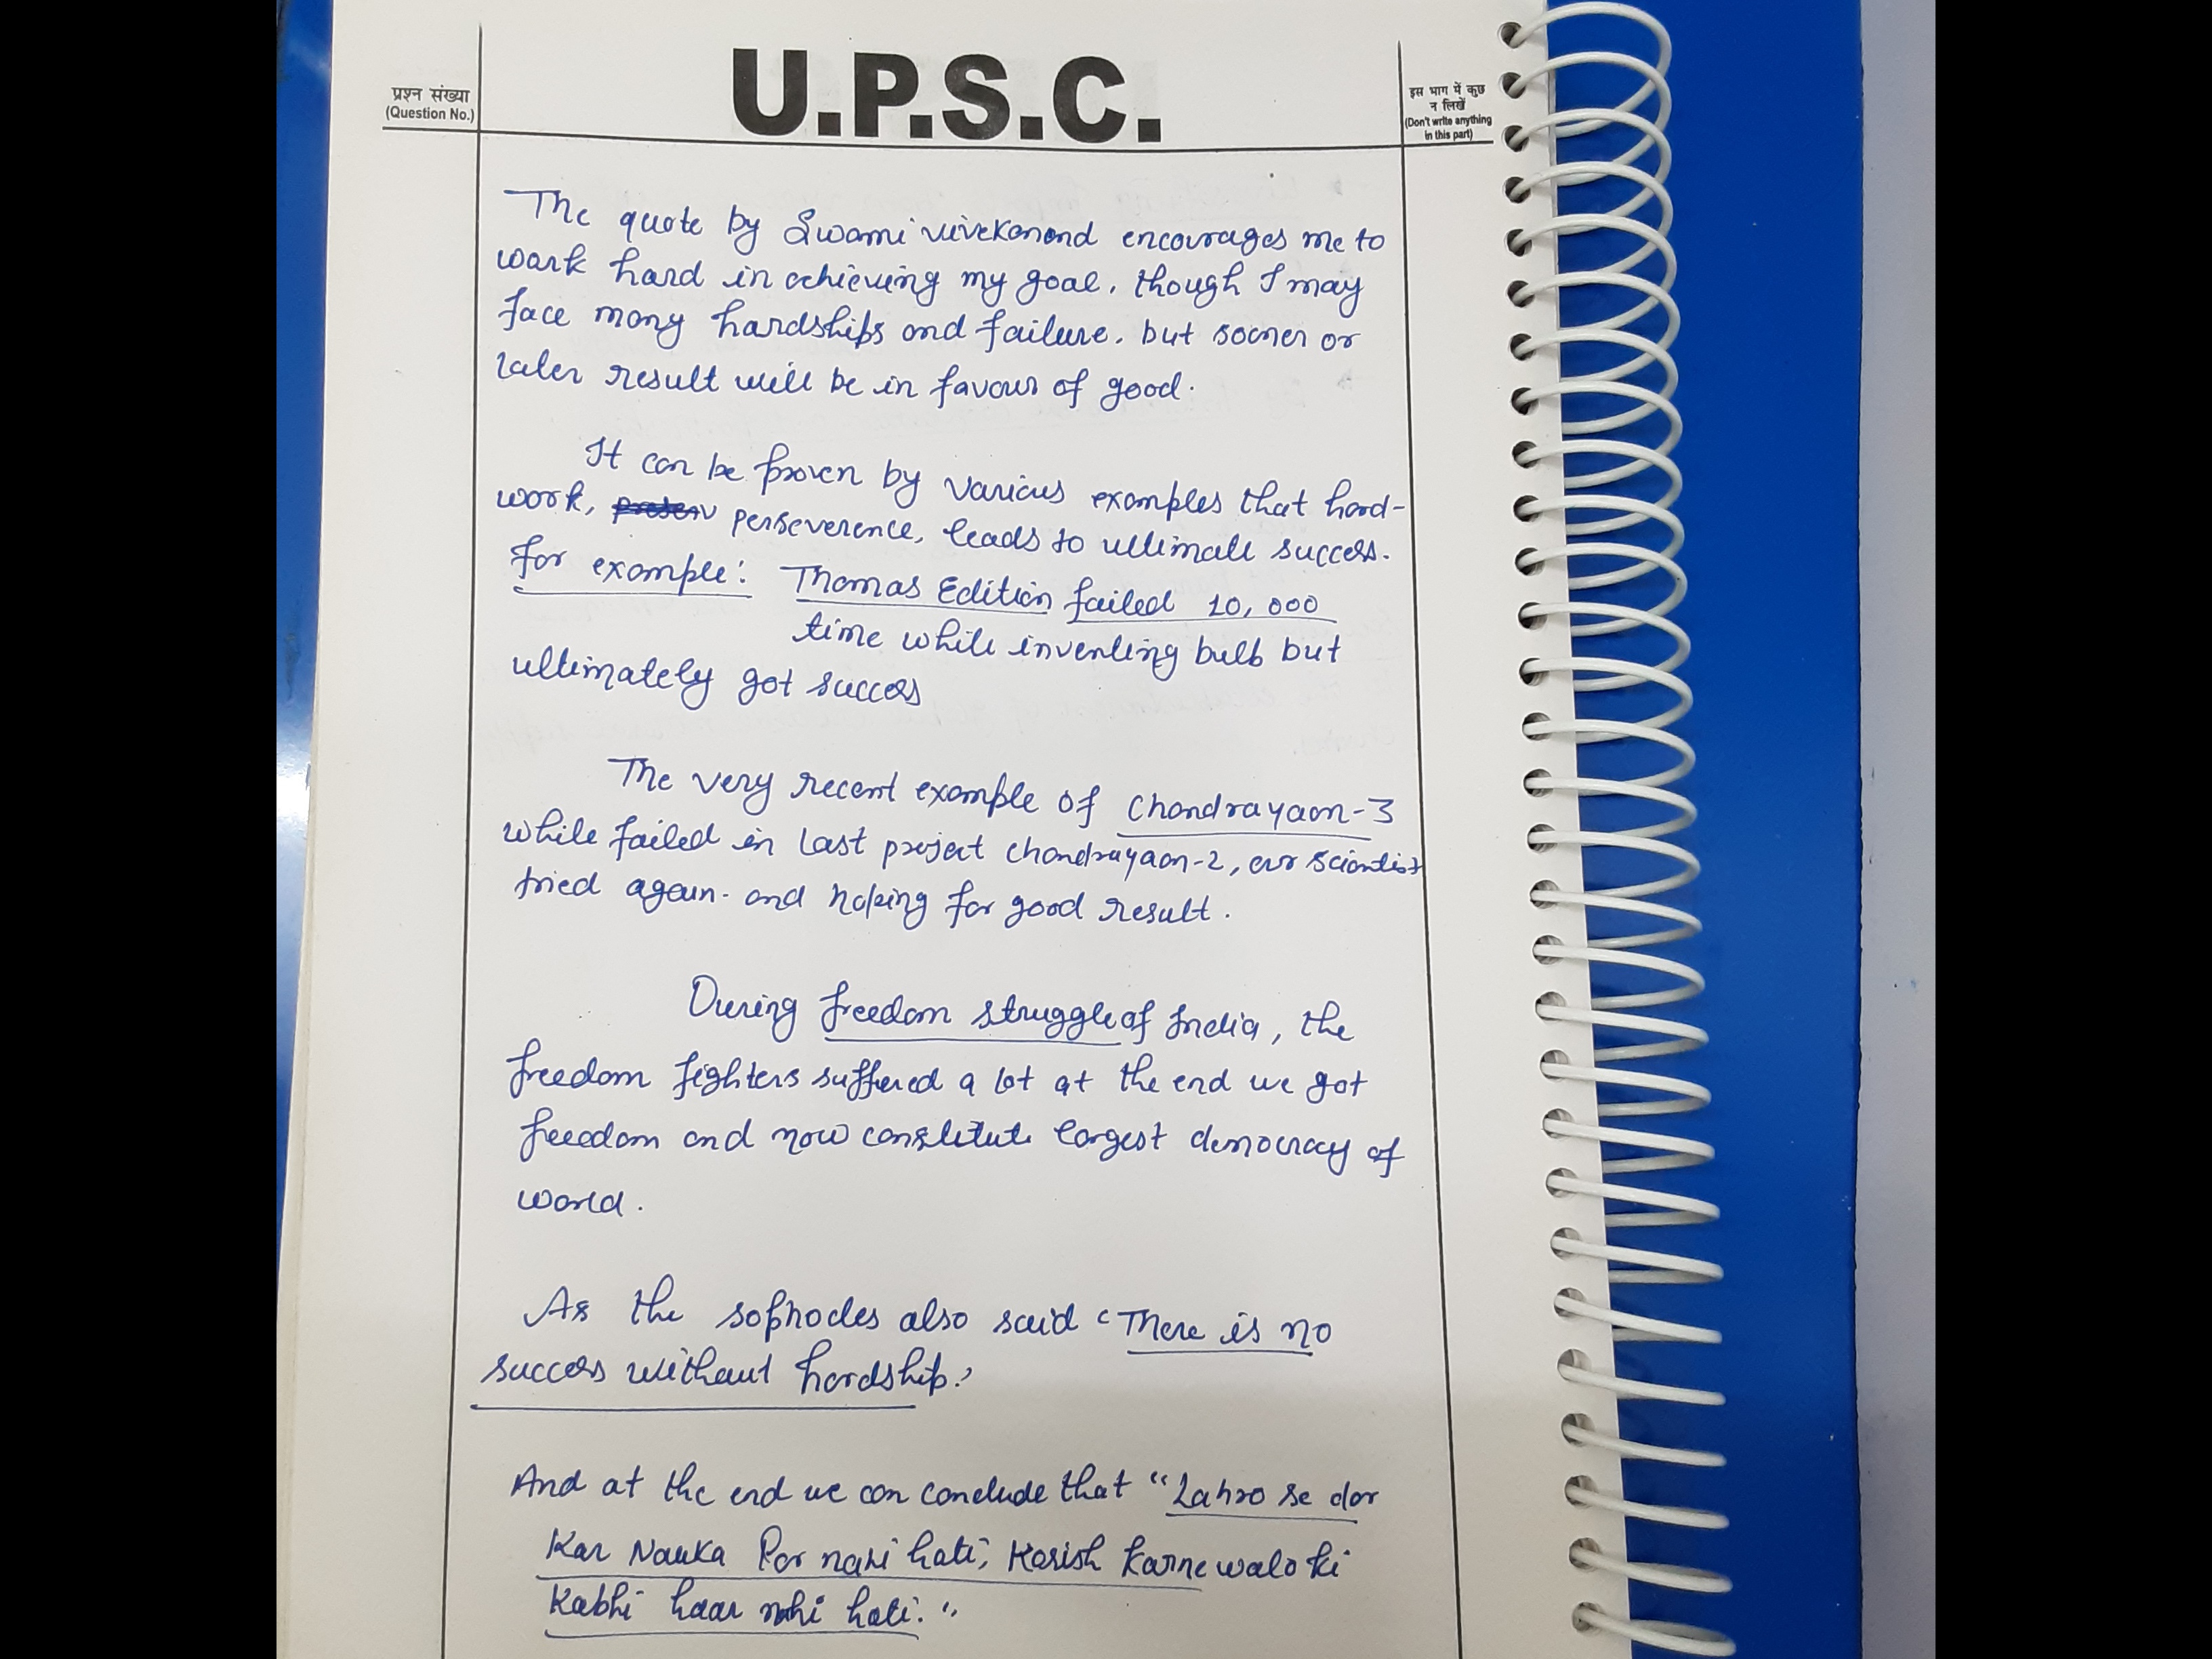 U.P.S.C.
प्रश्न संख्या
(Question No.)
इस भाग में कुछ
न लिखें
(Don't write anything
in this part)
The quote by Swami vivekanand encourages me to
work hard in achieving my goal, though I may
face many hardships and failure. but sooner or
later result will be in favour of good.
It can be proven by various examples that hard-
work, perseverence, leads to ultimate success.
for example: Thomas Edition failed 10,000
time while inventing bulb but
ultimately got success
The very recent example of Chandrayaan-3
while failed in last project chandrayaan-2, our scientist
tried again. and hoping for good result.
During freedom struggle of India, the
freedom fighters suffered a lot at the end we got
freedom and now constitute largest democracy of
world.
As the sophocles also said 'There is no
success without hardship.'
And at the end we can conclude that "Lahro se dar
Kar Nauka Par nahi hoti, Kosish karne walo ki
Kabhi haar nahi hoti."